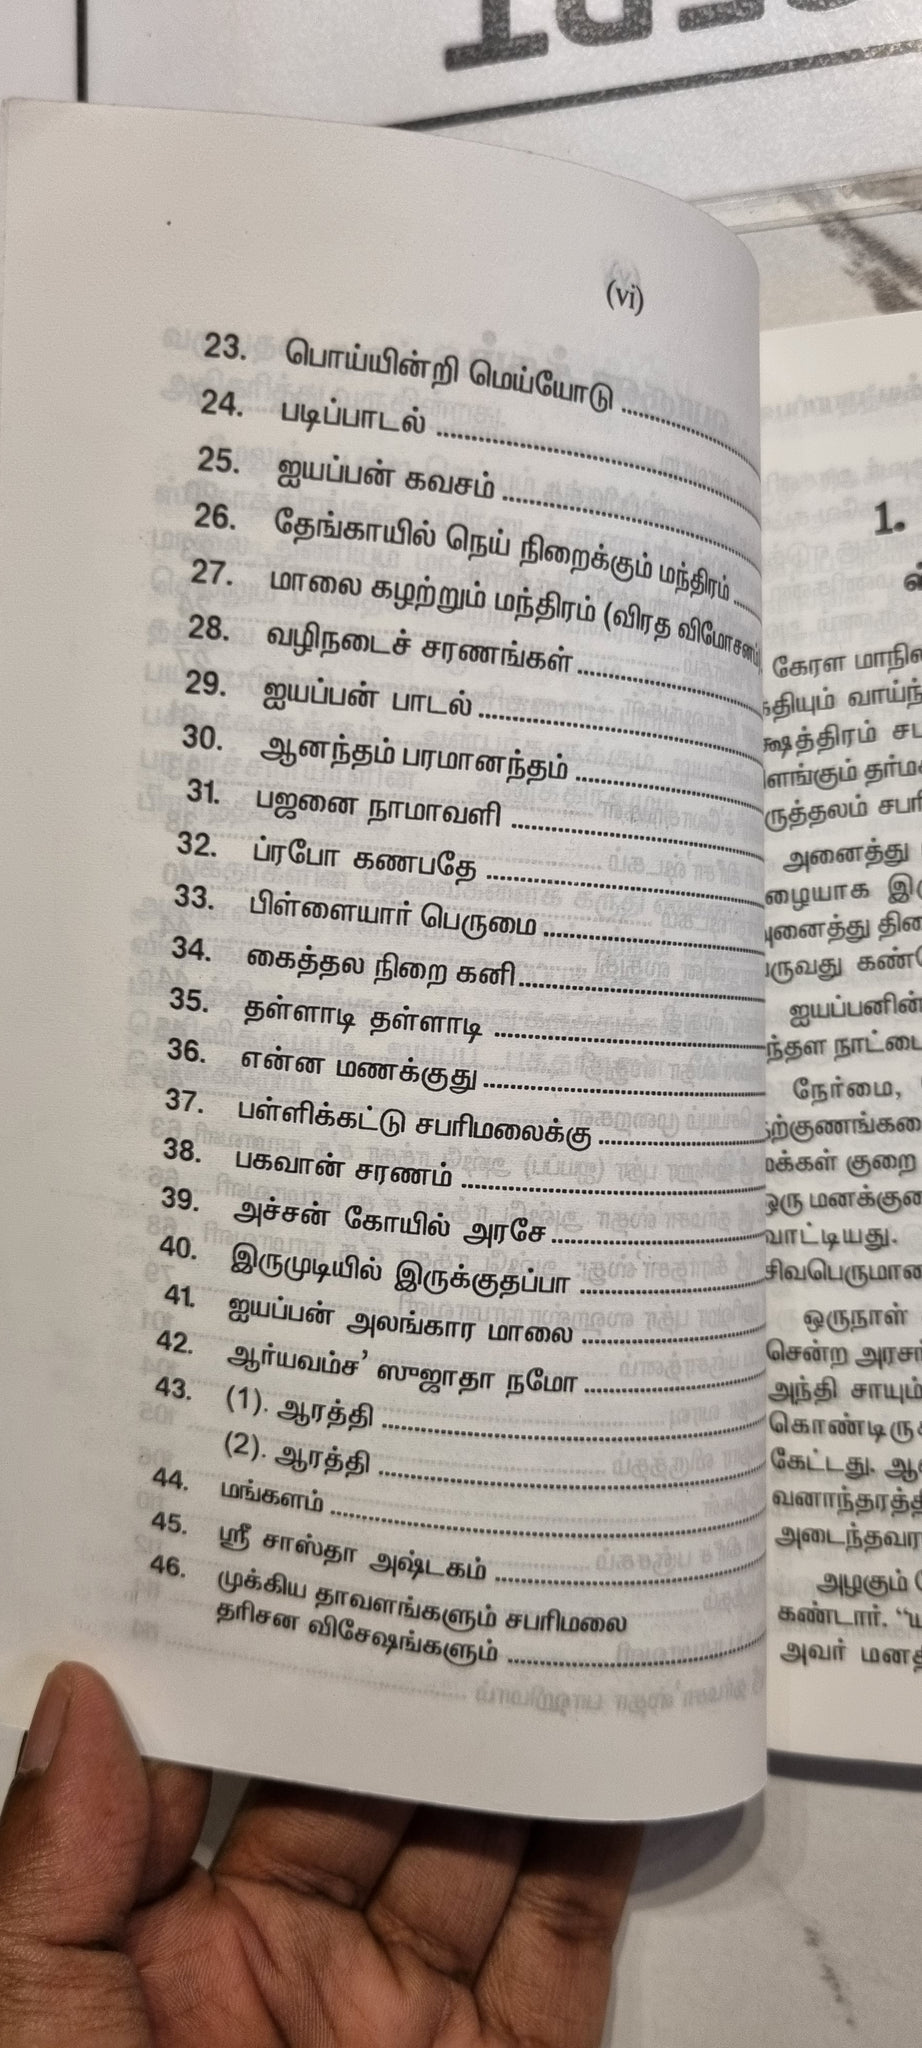 (vi)
23. பொய்யின்றி மெய்யோடு
24. படிப்பாடல்
25. ஐயப்பன் கவசம்
26. தேங்காயில் நெய் நிறைக்கும் மந்திரம்
27. மாலை கழற்றும் மந்திரம் (விரத விமோசனம்)
28. வழிநடைச் சரணங்கள்
29. ஐயப்பன் பாடல்
30. ஆனந்தம் பரமானந்தம்
31. பஜனை நாமாவளி
32. ப்ரபோ கணபதே
33. பிள்ளையார் பெருமை
34. கைத்தல நிறை கனி
35. தள்ளாடி தள்ளாடி
36. என்ன மணக்குது
37. பள்ளிக்கட்டு சபரிமலைக்கு
38. பகவான் சரணம்
39. அச்சன் கோயில் அரசே
40. இருமுடியில் இருக்குதப்பா
41. ஐயப்பன் அலங்கார மாலை
42. ஆர்யவம்ச' ஸுஜாதா நமோ
43. (1). ஆரத்தி
(2). ஆரத்தி
44. மங்களம்
45. ஸ்ரீ சாஸ்தா அஷ்டகம்
46. முக்கிய தாவளங்களும் சபரிமலை
தரிசன விசேஷங்களும்
1.
கேரள
வாய்ந்
சப
விளங்கும்
சபரி
அனைத்து
ஐயப்பனின்
நாட்டை
நேர்மை,
மக்கள் குறை
ஒரு
வாட்டியது.
சிவபெருமான
ஒருநாள்
சென்ற அரசர்
அந்தி சாயும்
கொண்டிரு
கேட்டது.
வனாந்தரத்தி
அடைந்தவர
அழகும்
கண்டார்.
அவர்